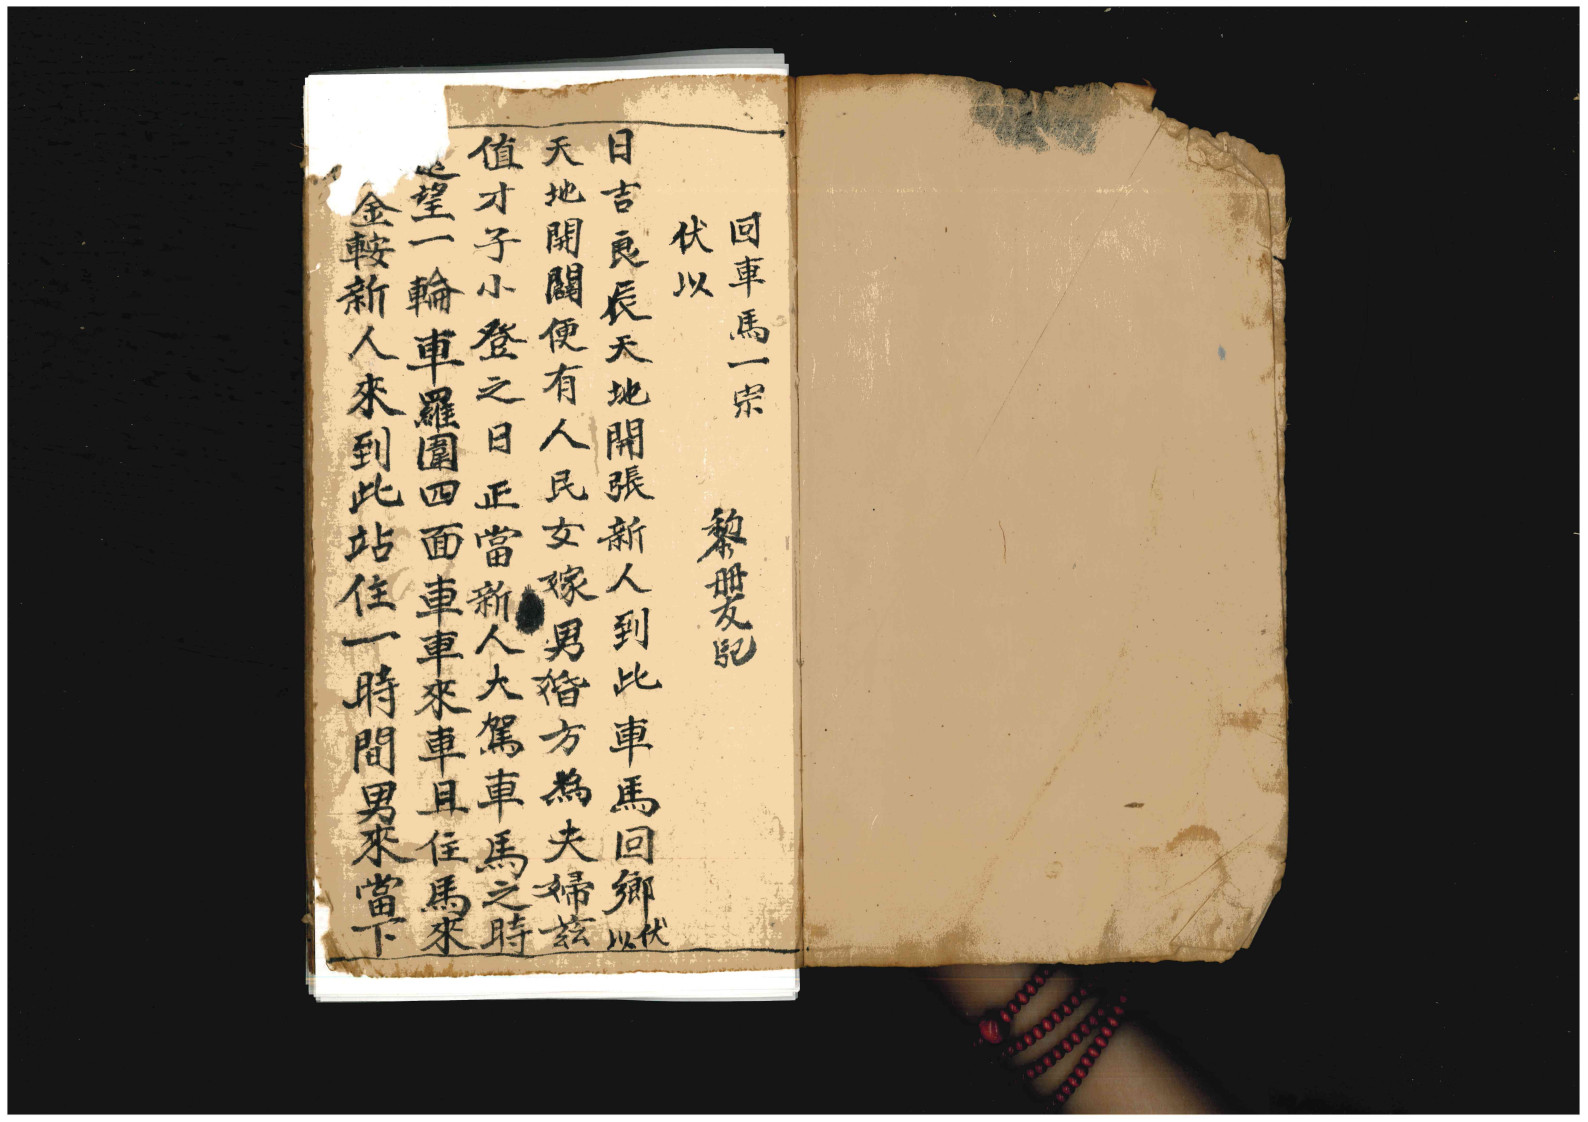 回車馬一宗
黎冊友記
伏以
日吉良辰天地開張新人到此車馬回鄉伏以
天地開闢便有人民女嫁男婚方為夫婦茲
值才子小登之日正當新人大駕車馬之時
望一輪車羅圍四面車車來車且住馬來
金鞍新人來到此站住一時間男來當下